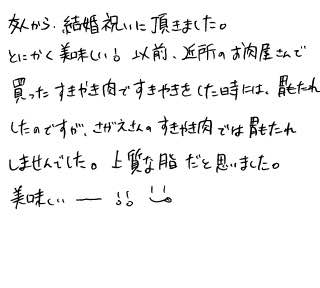 友人から、結婚祝いに頂きました。
とにかく美味しい！以前、近所のお肉屋さんで
買ったすきやき肉ですきやきをした時には、胃もたれ
したのですが、さがえさんのすきやき肉では胃もたれ
しませんでした。上質な脂だと思いました。
美味しいー!!